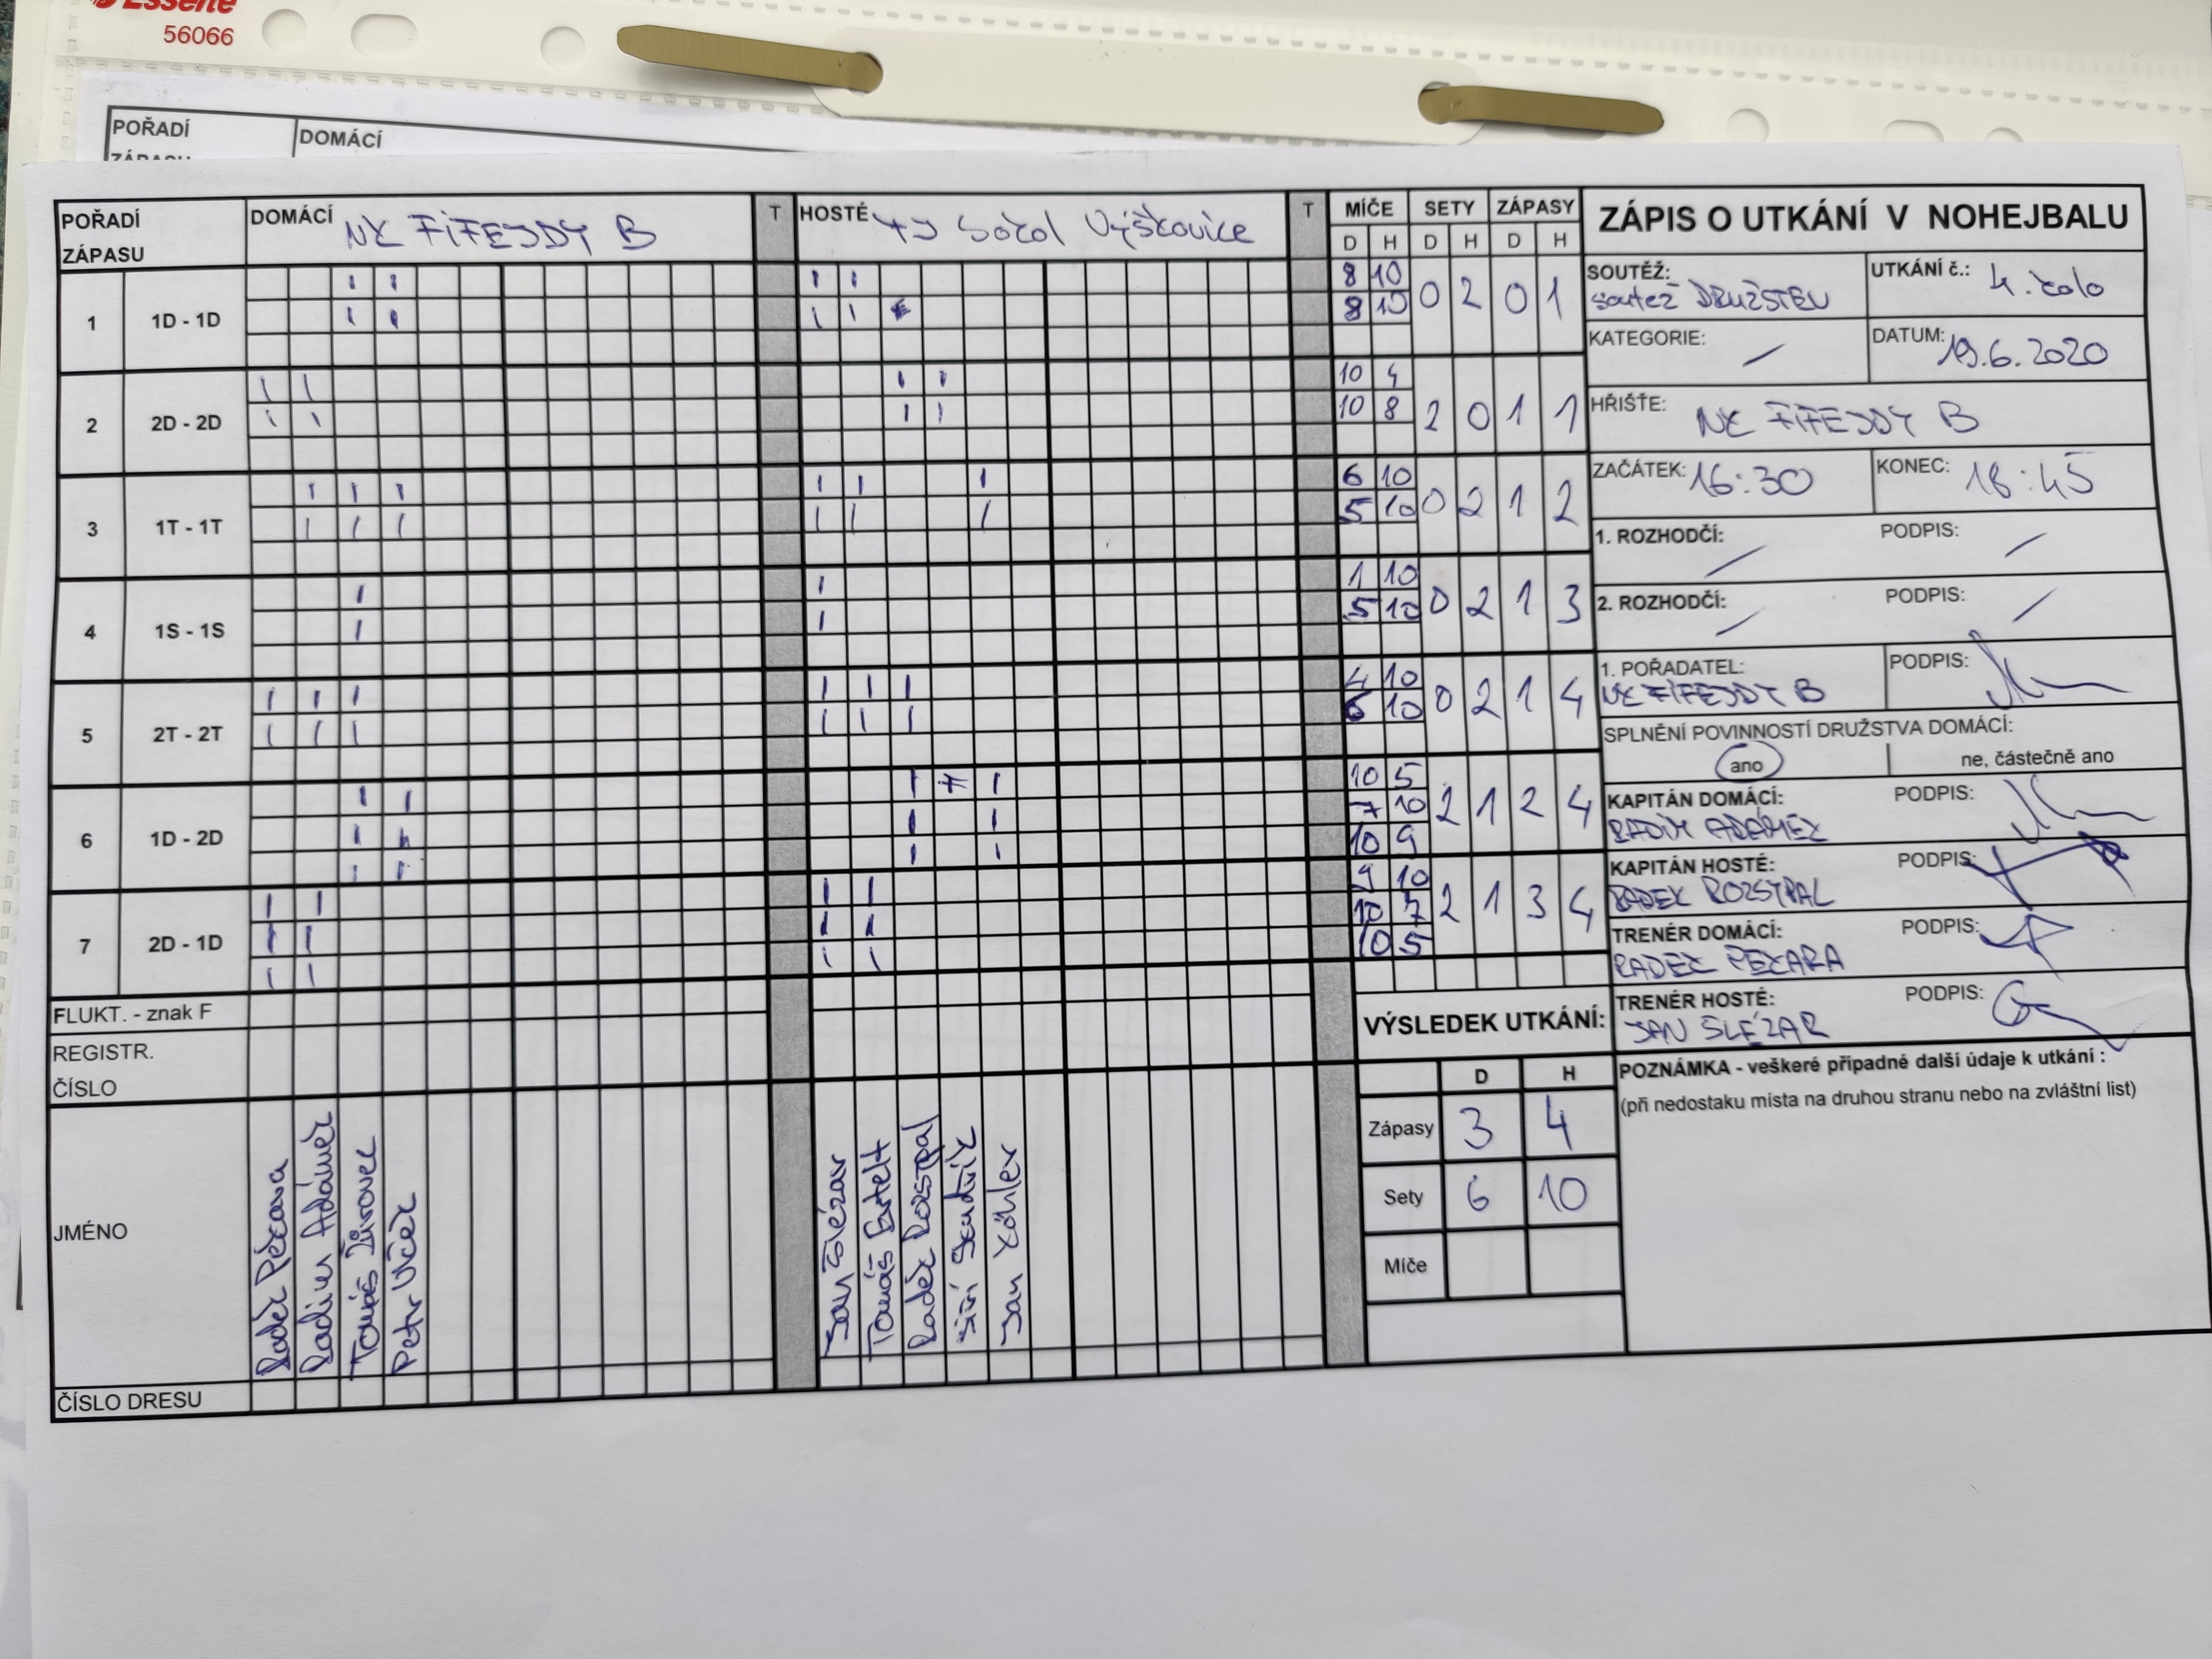 Esselte
56066
POŘADÍ DOMÁCÍ
POŘADÍ ZÁPASU DOMÁCÍ NK FIFEJDY B T HOSTÉ TJ Sokol Výškovice T MÍČE SETY ZÁPASY
D H D H D H
1 1D - 1D 8 10 0 2 0 1
8 10
2 2D - 2D 10 4 2 0 1 1
10 8
3 1T - 1T 6 10 0 2 1 2
5 10
4 1S - 1S 1 10 0 2 1 3
5 10
5 2T - 2T 4 10 0 2 1 4
6 10
6 1D - 2D F 10 5 2 1 2 4
7 10
10 9
7 2D - 1D 9 10 2 1 3 4
10 7
10 5
FLUKT. - znak F
REGISTR.
ČÍSLO
JMÉNO
Radek Pekara
Radim Adámek
Tomáš Žůrovec
Petr Vlček
Jan Slézar
Tomáš Bartelt
Radek Rozsypal
Jiří
Jan Köhler
ČÍSLO DRESU
VÝSLEDEK UTKÁNÍ:
D H
Zápasy 3 4
Sety 6 10
Míče
ZÁPIS O UTKÁNÍ V NOHEJBALU
SOUTĚŽ: soutěž DRUŽSTEV UTKÁNÍ č.: 4. kolo
KATEGORIE: / DATUM: 19.6.2020
HŘIŠTE: NK FIFEJDY B
ZAČÁTEK: 16:30 KONEC: 18:45
1. ROZHODČÍ: / PODPIS: /
2. ROZHODČÍ: / PODPIS: /
1. POŘADATEL: PODPIS:
NK FIFEJDY B
SPLNĚNÍ POVINNOSTÍ DRUŽSTVA DOMÁCÍ:
ano ne, částečně ano
KAPITÁN DOMÁCÍ: PODPIS:
RADIM ADÁMEK
KAPITÁN HOSTÉ: PODPIS:
RADEK ROZSYPAL
TRENÉR DOMÁCÍ: PODPIS:
RADEK PEKARA
TRENÉR HOSTÉ: PODPIS:
JAN SLÉZAR
POZNÁMKA - veškeré případné další údaje k utkání :
(při nedostaku místa na druhou stranu nebo na zvláštní list)